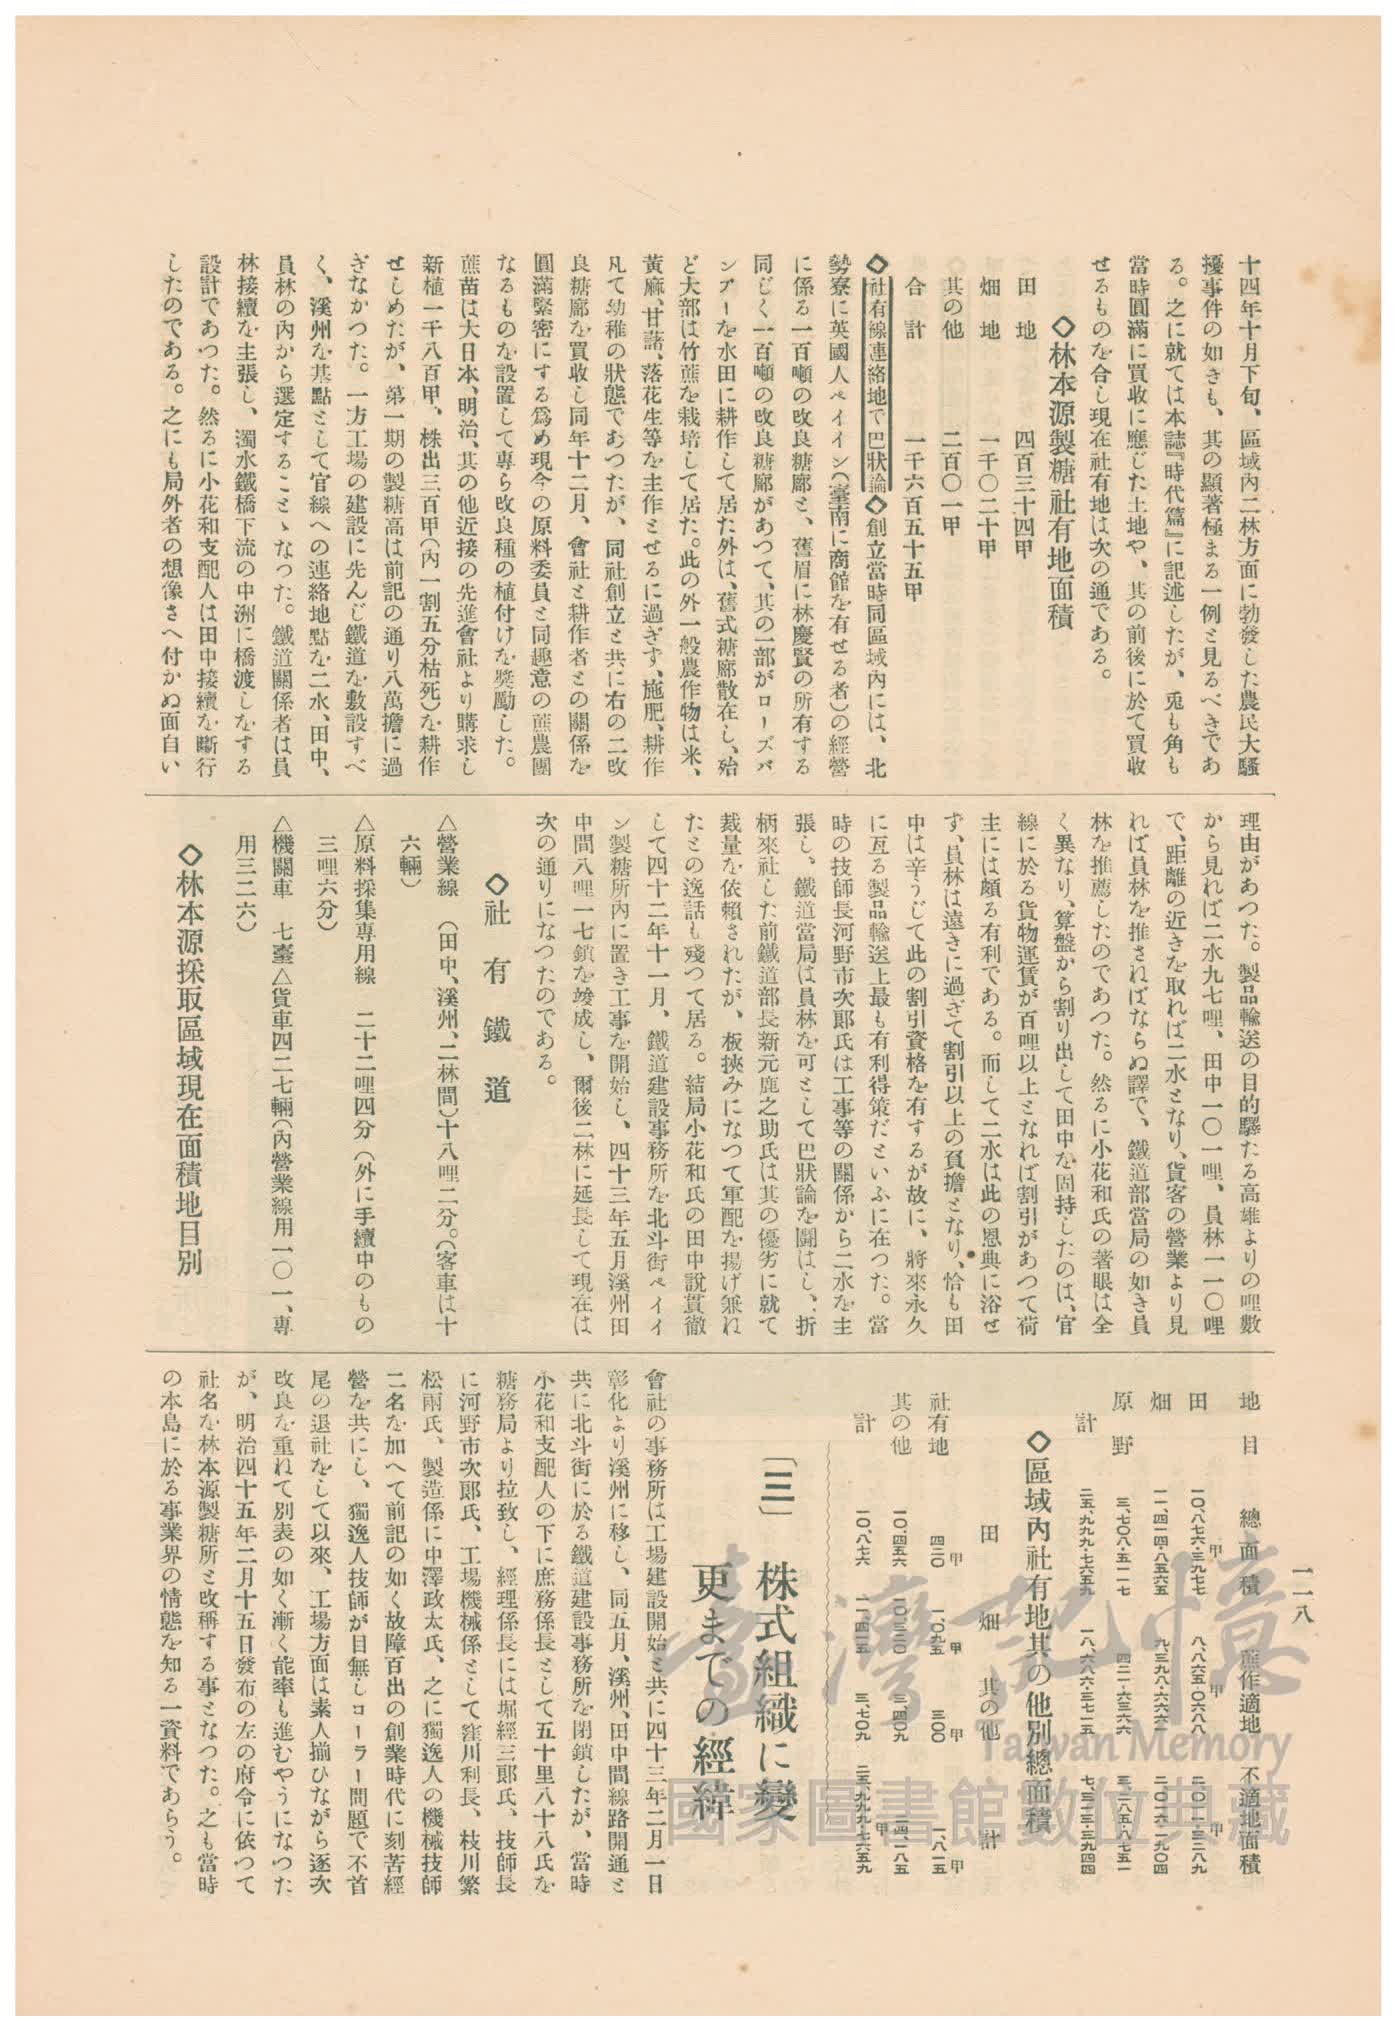 一一八
十四年十月下旬、區域內二林方面に勃發した農民大騷
擾事件の如きも、其の顯著極まる一例と見るべきであ
る。之に就ては本誌『時代篇』に記述したが、兎も角も
當時圓滿に買收に應じた土地や、其の前後に於て買收
せるものを合し現在社有地は次の通である。
◇林本源製糖社有地面積
田地 四百三十四甲
畑地 一千〇二十甲
其の他 二百〇一甲
合計 一千六百五十五甲
◇社有線連絡地で巴狀論◇創立當時同區域內には、北
勢寮に英國人ペイイン(臺南に商館を有せる者)の經營
に係る一百噸の改良糖廍と、舊眉に林慶賢の所有する
同じく一百噸の改良糖廍があつて、其の一部がローズバ
ンブーを水田に耕作して居た外は、舊式糖廍散在し、殆
ど大部は竹蔗を栽培して居た。此の外一般農作物は米、
黃麻、甘藷、落花生等を主作とせるに過ぎず、施肥、耕作
凡て幼稚の狀態であつたが、同社創立と共に右の二改
良糖廍を買收し同年十二月、會社と耕作者との關係を
圓滿緊密にする爲め現今の原料委員と同趣意の蔗農團
なるものを設置して專ら改良種の植付けを奬勵した。
蔗苗は大日本、明治、其の他近接の先進會社より購求し
新植一千八百甲、株出三百甲(內一割五分枯死)を耕作
せしめたが、第一期の製糖高は前記の通り八萬擔に過
ぎなかつた。一方工場の建設に先んじ鐵道を敷設すべ
く、溪州を基點として官線への連絡地點を二水、田中、
員林の內から選定することゝなつた。鐵道關係者は員
林接續を主張し、濁水鐵橋下流の中洲に橋渡しをする
設計であつた。然るに小花和支配人は田中接續を斷行
したのである。之にも局外者の想像さへ付かぬ面自い
理由があつた。製品輸送の目的驛たる高雄よりの哩數
から見れば二水九七哩、田中一〇一哩、員林一一〇哩
で、距離の近きを取れば二水となり、貨客の營業より見
れば員林を推さねばならぬ譯で、鐵道部當局の如き員
林を推薦したのであつた。然るに小花和氏の著眼は全
く異なり、算盤から割り出して田中を固持したのは、官
線に於る貨物運賃が百哩以上となれば割引があつて荷
主には頗る有利である。而して二水は此の恩典に浴せ
ず、員林は遠きに過ぎて割引以上の負擔となり、恰も田
中は辛うじて此の割引資格を有するが故に、將來永久
に亙る製品輸送上最も有利得策だといふに在つた。當
時の技師長河野市次郞氏は工事等の關係から二水を主
張し、鐵道當局は員林を可として巴狀論を鬪はし、折
柄來社した前鐵道部長新元鹿之助氏は其の優劣に就て
裁量を依賴されたが、板挾みになつて軍配を揚げ兼ね
たとの逸話も殘つて居る。結局小花和氏の田中說貫徹
して四十二年十一月、鐵道建設事務所を北斗街ペイイ
ン製糖所內に置き工事を開始し、四十三年五月溪州田
中間八哩一七鎖を竣成し、爾後二林に延長して現在は
次の通りになつたのである。
◇社有鐵道
△營業線 (田中、溪州、二林間)十八哩二分。(客車は十
六輛)
△原料採集專用線 二十二哩四分(外に手續中のもの
三哩六分)
△機關車 七臺△貨車四二七輛(內營業線用一〇一、專
用三二六)
◇林本源採取區域現在面積地目別
地目 總面積 蔗作適地 不適地面積
甲 甲 甲
田 一〇、八七六・三九七七 八、八六五・〇六八八 二、〇一一・三二八九
畑 一一、四一四・八五六五 九、三九八・六六六一 二、〇一六・一九〇四
原野 三、七〇八・五一一七 四二二・六三六六 三、二八五・八七五一
計 二五、九九九・七六五九 一八、六八六・三七一五 七、三一三・三九四四
◇區域內社有地其の他別總面積
田 畑 其の他 計
甲 甲 甲 甲
社有地 四二〇 一、〇九五 三〇〇 一、八一五
其の他 一〇、四五六 一〇、三二〇 三、四〇九 二四、一八五
甲
計 一〇、八七六 一一、四一五 三、七〇九 二五、九九九・七六五九
〔三〕 株式組織に變
更までの經緯
會社の事務所は工場建設開始と共に四十三年二月一日
彰化より溪州に移し、同五月、溪州、田中間線路開通と
共に北斗街に於る鐵道建設事務所を閉鎖したが、當時
小花和支配人の下に庶務係長として五十里八十八氏を
糖務局より拉致し、經理係長には堀經三郞氏、技師長
に河野市次郞氏、工場機械係として窪川利長、枝川繁
松兩氏、製造係に中澤政太氏、之に獨逸人の機械技師
二名を加へて前記の如く故障百出の創業時代に刻苦經
營を共にし、獨逸人技師が目無しローラー問題で不首
尾の退社をして以來、工場方面は素人揃ひながら逐次
改良を重ねて別表の如く漸く能率も進むやうになつた
が、明治四十五年二月十五日發布の左の府令に依つて
社名を林本源製糖所と改稱する事となつた。之も當時
の本島に於る事業界の情態を知る一資料であらう。
臺灣記憶
Taiwan Memory
國家圖書館數位典藏